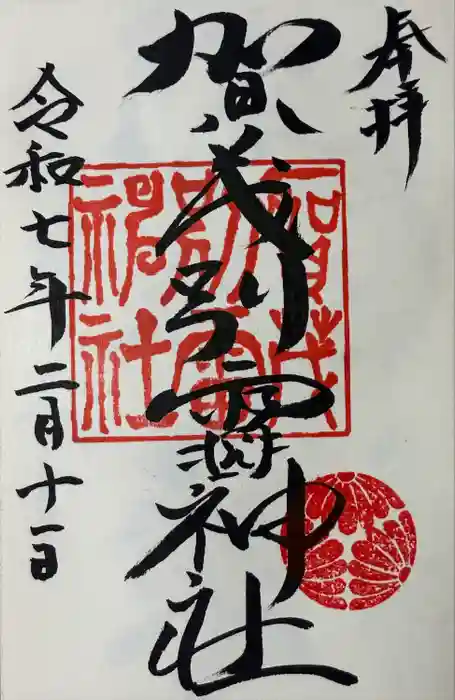 奉拝
賀茂別雷神社
令和七年二月十一日
賀茂
別雷
神社